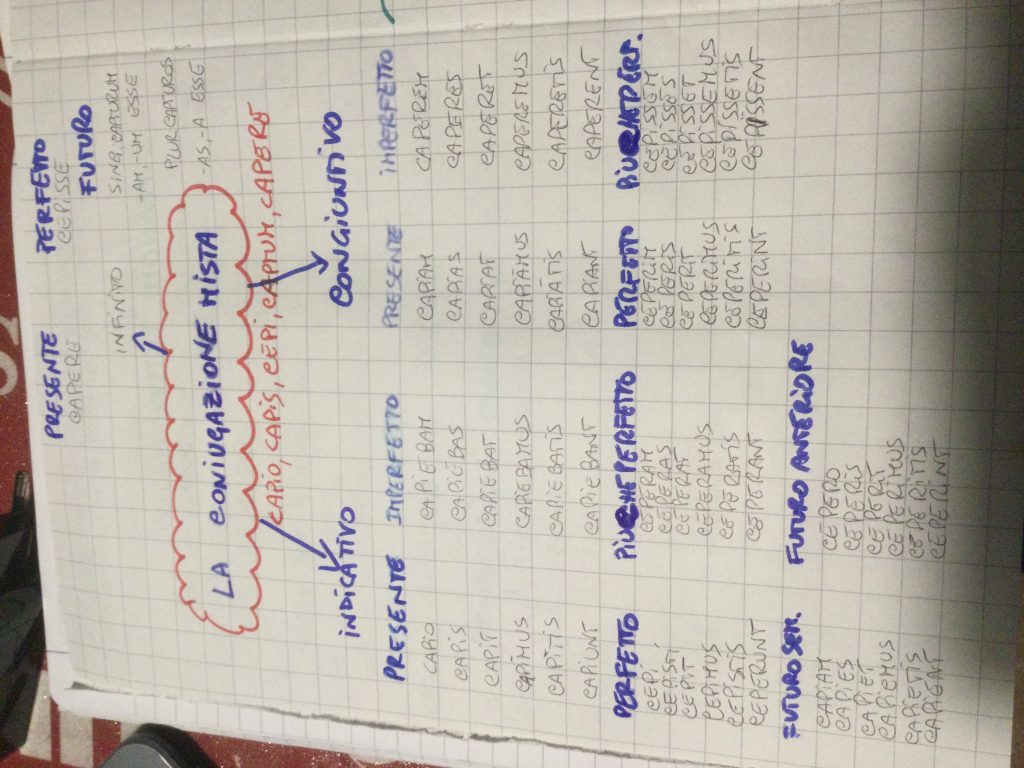 PRESENTE PERFETTO
CAPERE CEPISSE
FUTURO
INFINITO
SING. CAPTURUM
-AM-UM ESSE
PLUR CAPTUROS
-AS,-A ESSE
LA CONIUGAZIONE MISTA
CAPIO, CAPIS, CEPI, CAPTUM, CAPERE
INDICATIVO CONGIUNTIVO
PRESENTE IMPERFETTO PRESENTE IMPERFETTO
CAPIO CAPIEBAM CAPIAM CAPEREM
CAPIS CAPIEBAS CAPIAS CAPERES
CAPIT CAPIEBAT CAPIAT CAPERET
CAPIMUS CAPIEBAMUS CAPIAMUS CAPEREMUS
CAPITIS CAPIEBATIS CAPIATIS CAPERETIS
CAPIUNT CAPIEBANT CAPIANT CAPERENT
PERFETTO PIUCHEPERFETTO PERFETTO PIUCHEPERF.
CEPI CEPERAM CEPERIM CEPISSEM
CEPISTI CEPERAS CEPERIS CEPISSES
CEPIT CEPERAT CEPERIT CEPISSET
CEPIMUS CEPERAMUS CEPERIMUS CEPISSEMUS
CEPISTIS CEPERATIS CEPERITIS CEPISSETIS
CEPERUNT CEPERANT CEPERINT CEPISSENT
FUTURO SEM. FUTURO ANTERIORE
CAPIAM CEPERO
CAPIES CEPERIS
CAPIET CEPERIT
CAPIEMUS CEPERIMUS
CAPIETIS CEPERITIS
CAPIENT CEPERINT